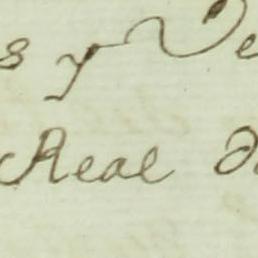 s y Ve
Real d